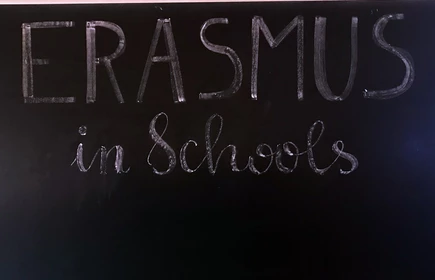 ERASMUS
in Schools